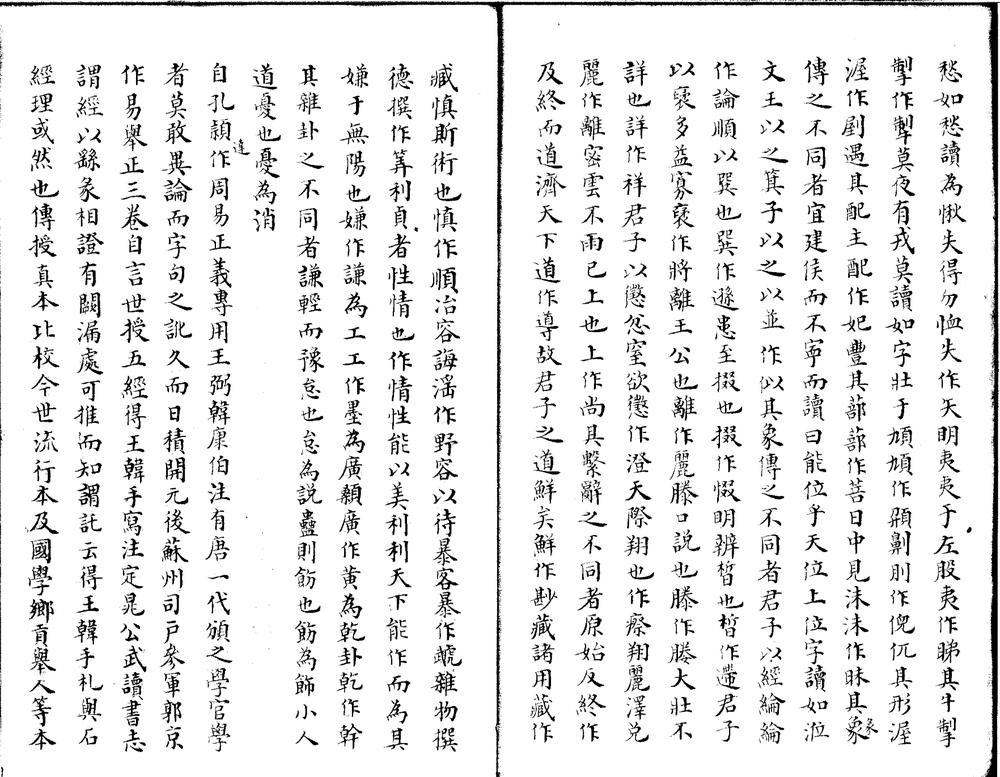 愁如愁讀為愀失得勿恤失作矢明夷夷于左股夷作睇其牛掣
掣作犎莫夜有戎莫讀如字壯于頄頄作頯劓刖作倪㐳其形渥
渥作剭遇其配主配作妃豐其蔀蔀作菩日中見沬沬作昧其象彖
傳之不同者宜建侯而不寧而讀曰能位乎天位上位字讀如涖
文王以之箕子以之以並作似其象傳之不同者君子以經綸綸
作論順以巽也巽作遜患至掇也掇作惙明辨晳也晳作遰君子
以裒多益寡裒作捋離王公也離作麗滕口說也滕作媵大壯不
詳也詳作祥君子以懲忿窒欲懲作澄天際翔也作瘵翔麗澤兌
麗作離密雲不雨已上也上作尚其繫辭之不同者原始反終作
及終而道濟天下道作導故君子之道鮮矣鮮作尟藏諸用藏作
臧慎斯術也慎作順冶容誨淫作野容以待暴客暴作虣雜物撰
德撰作筭利貞者性情也作情性能以美利利天下能作而為其
嫌于無陽也嫌作謙為工工作墨為廣顙廣作黃為乾卦乾作幹
其雜卦之不同者謙輕而豫怠也怠為說蠱則飭也飭為飾小人
道憂也憂為消
自孔頴達作周易正義專用王弼韓康伯注有唐一代頒之學官學
者莫敢異論而字句之訛久而日積開元後蘇州司戶參軍郭京
作易舉正三卷自言世授五經得王韓手寫注定晁公武讀書志
謂經以繇彖相證有闕漏處可推而知謂託云得王韓手札與石
經理或然也傳授真本比校今世流行本及國學鄉貢舉人等本